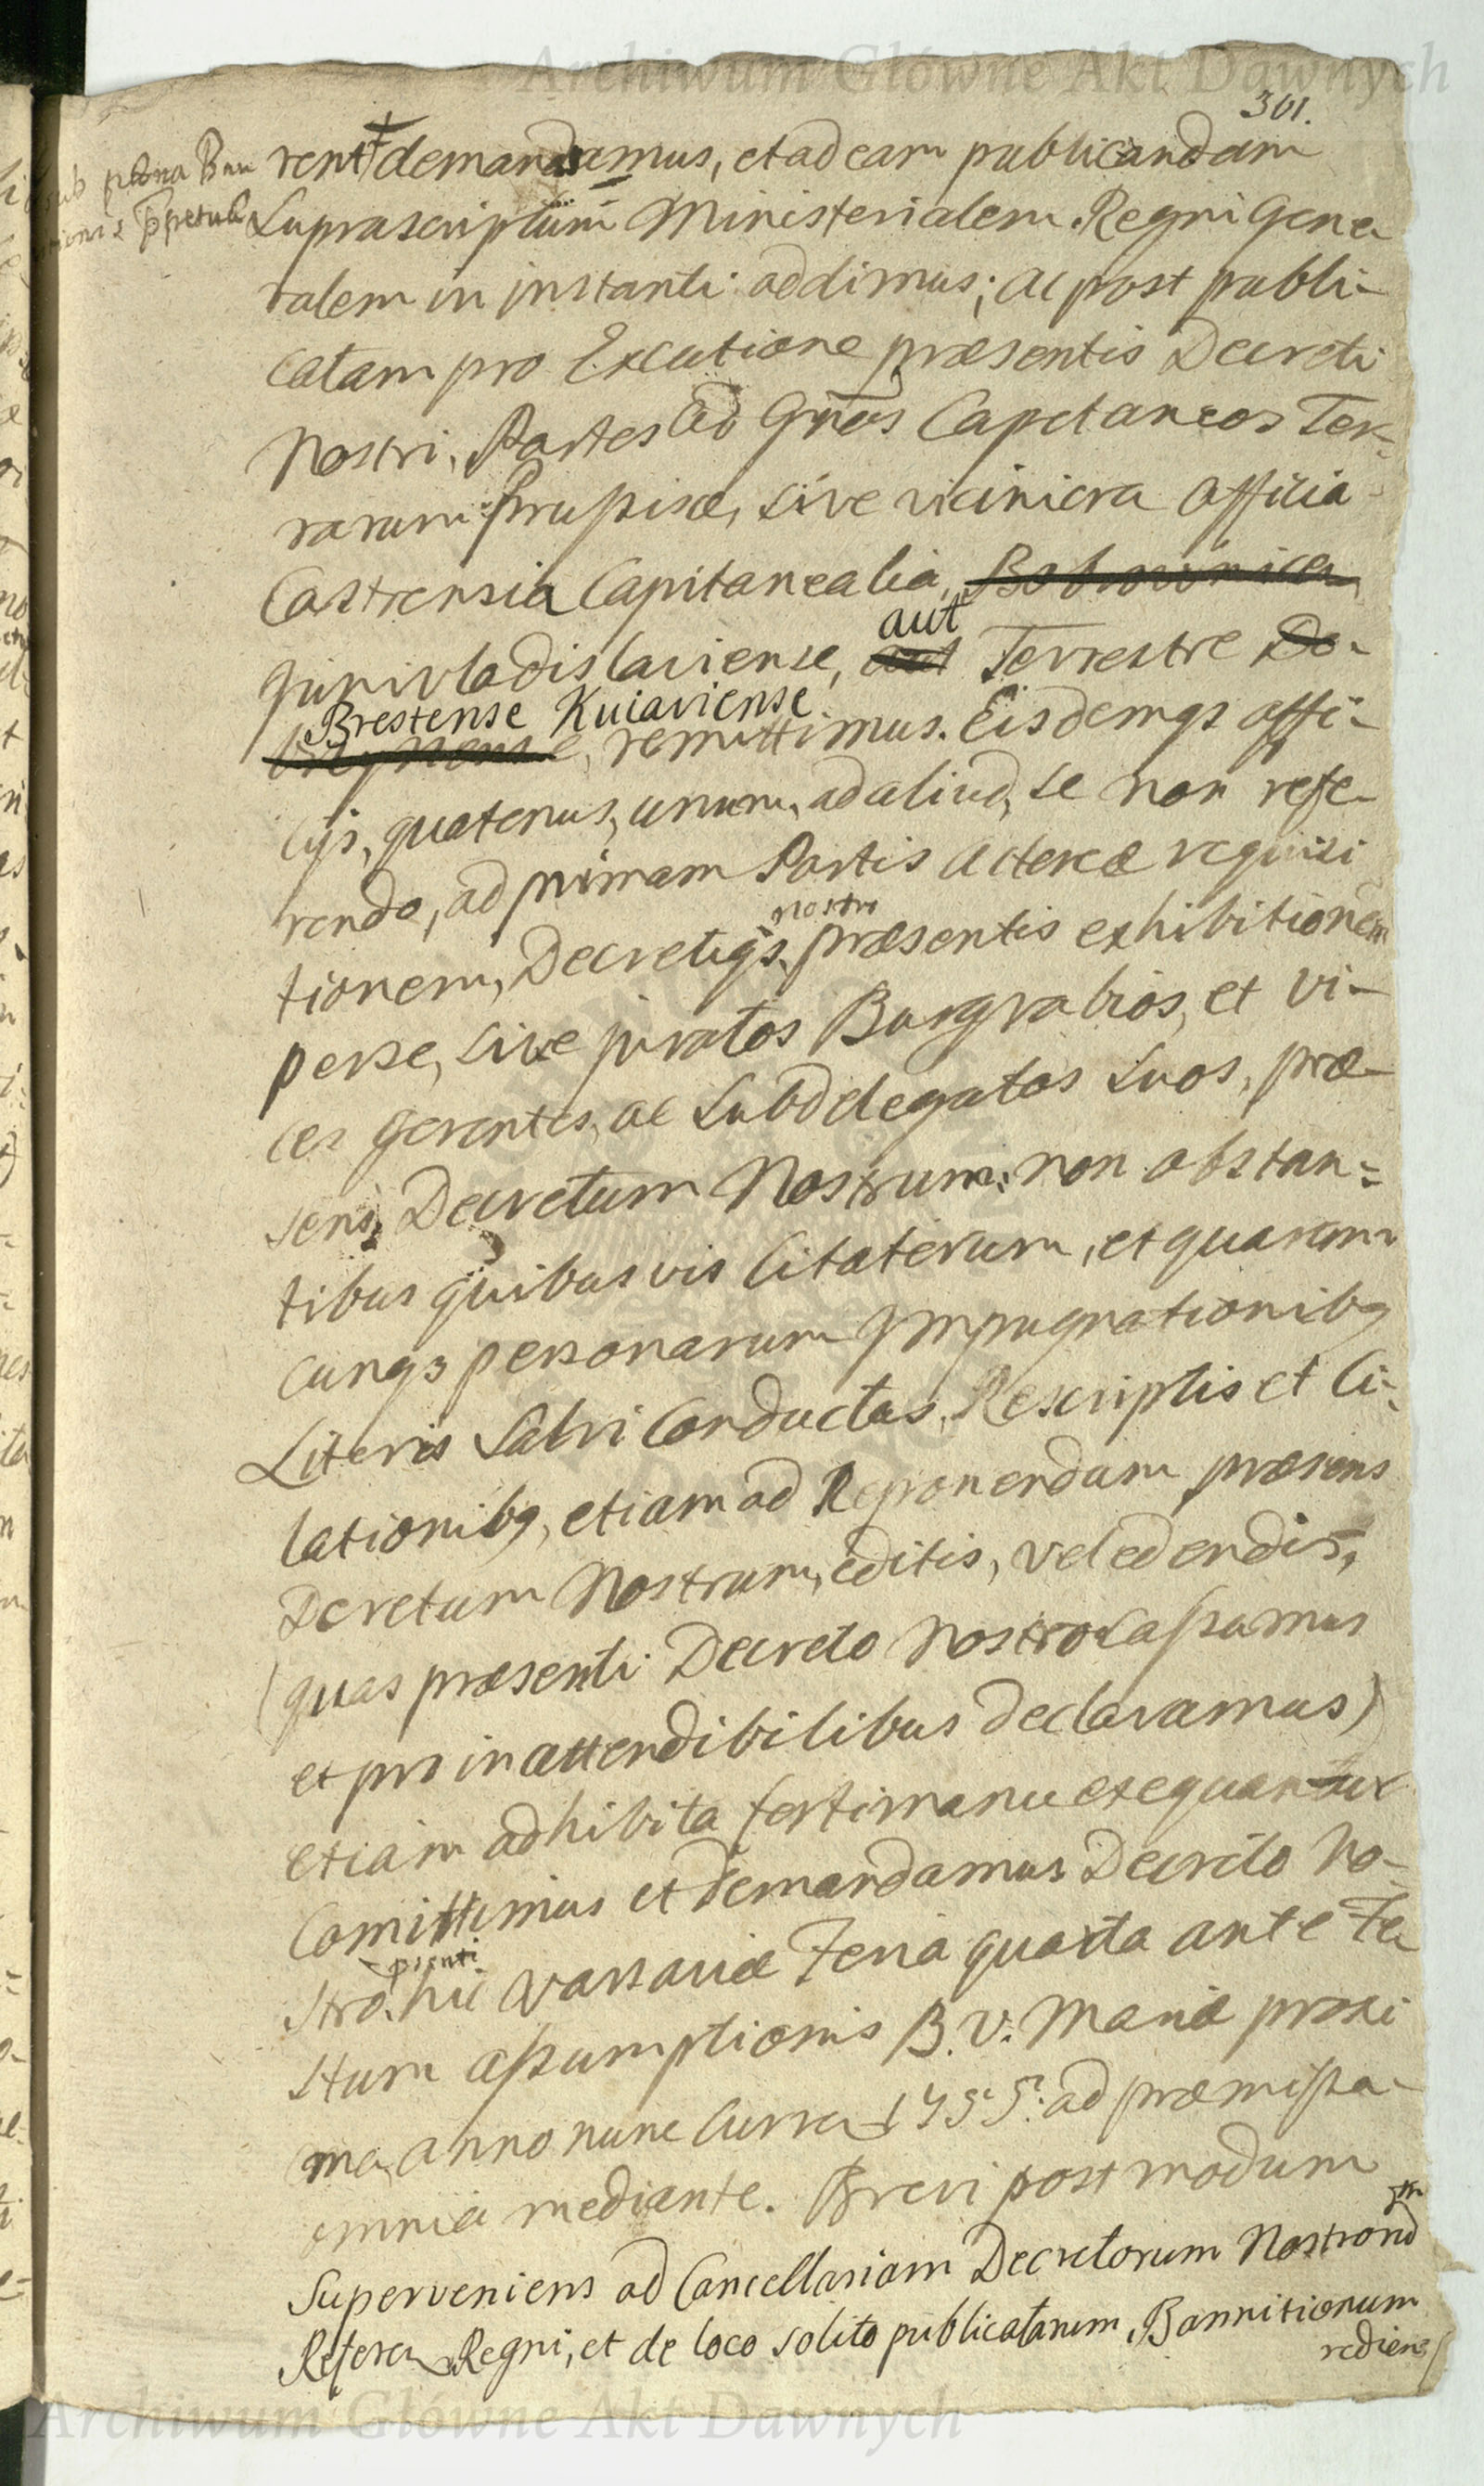 Archiwum Główne Akt Dawnych
301.
sub pœna Ban
nionis ppetuæ
rent demandamus, et ad eam publicandam
Suprascriptum Ministerialem Regni Gene
ralem in instanti addimus; ac post publi-
catam pro Executione præsentis Decreti
Nostri, Partes ad Gnos Capitaneos Ter-
rarum Prussiæ, sive viciniora Officia
Castrensia Capitanealia, Bobrovnicen
Junivladislaviense, aut Terrestre Do-
aut
Brestense Kuiaviense
brzynense, remittimus. Eisdemqs offi-
cijs, quatenus, unum, ad aliud, se non refe-
rendo, ad primam Partis Actoreæ requisi
tionem, Decretiqs præsentis exhibitionem
nostri
per se, sive juratos Burgrabios, et vi-
ces gerentes, ac Subdelegatos suos, præ-
sens Decretum Nostrum, non obstan-
tibus quibusvis Citatorum, et quarum
cunqs personarum Impugnationibq
Literis Salvi Conductus, Rescriptis et Ci-
lationibq, etiam ad Reponendum præsens
Decretum Nostrum, editis, vel edendis,
(quas præsenti Decreto Nostro Cassamus
et pro inattendibilibus declaramus)
etiam adhibita forti manu exequantur
Comittimus et demandamus Decreto No-
stro hic Varsaviæ Feria quarta ante Fe
psenti
stum Assumptionis B. V. Mariæ proxi
ma, anno nunc Curren 1755. ad præmissa
omnia mediante. Brevi post modum
Superveniens ad Cancellariam Decretorum Nostrorum
Referen Regni, et de loco solito publicatarum, Bannitionum
rediens
Archiwum Główne Akt Dawnych